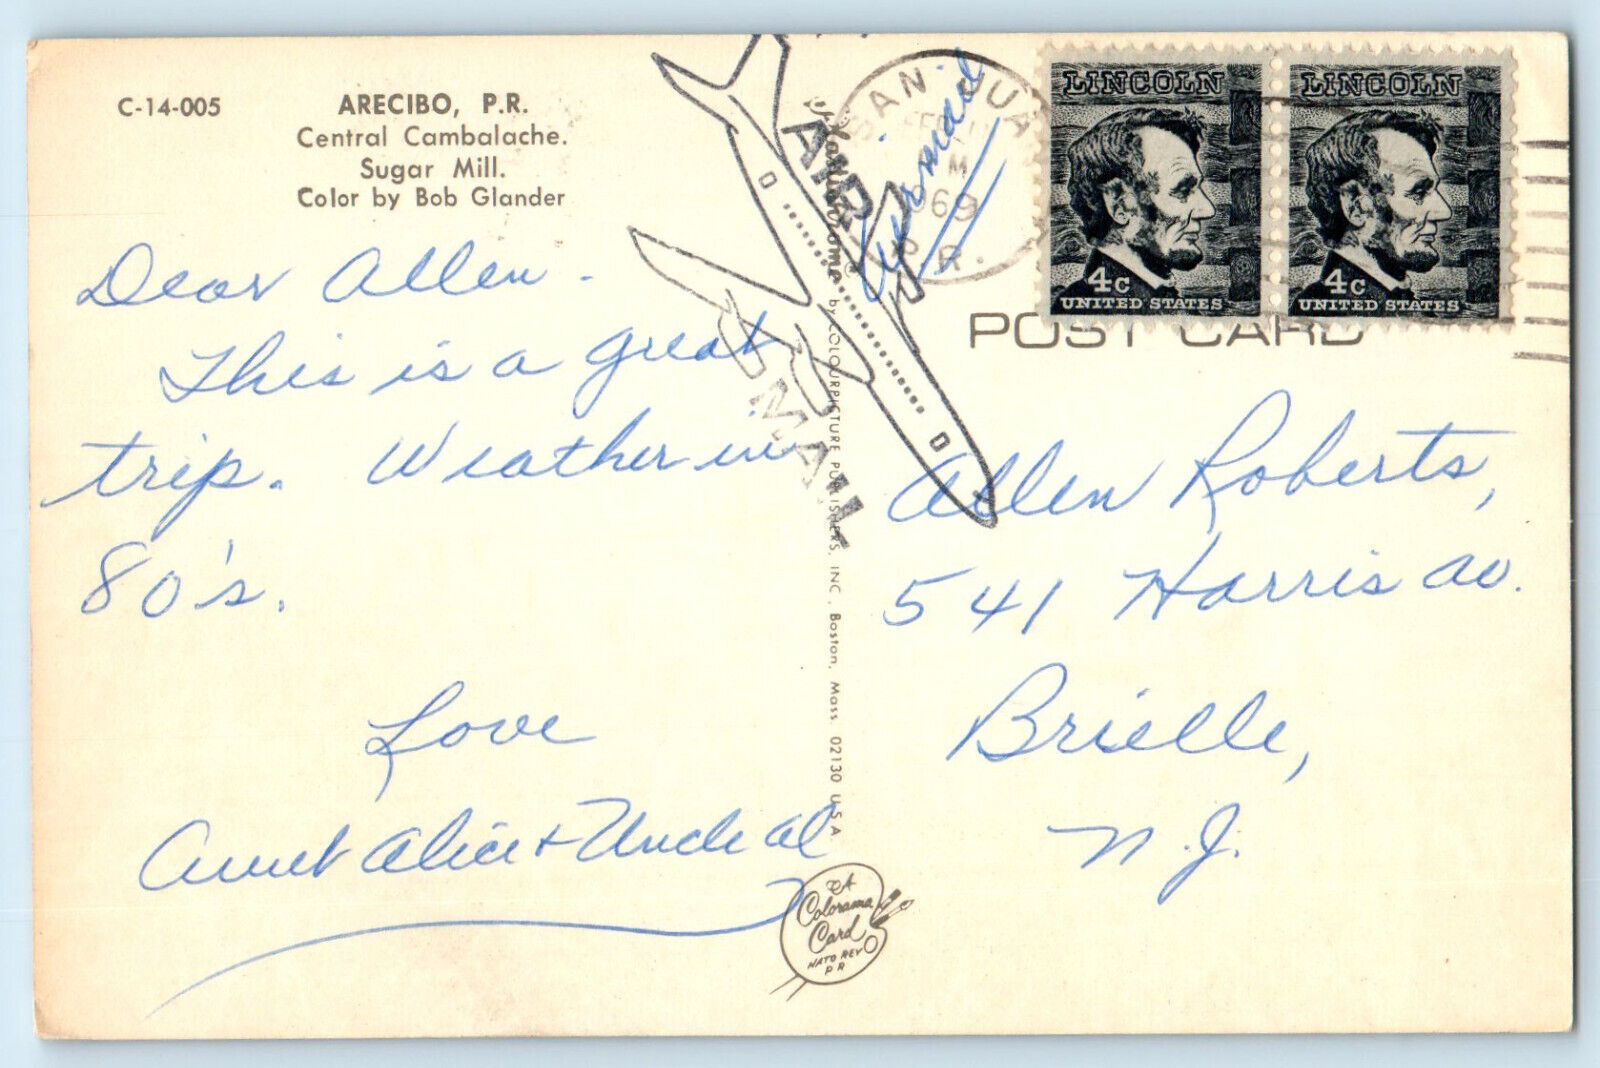 C-14-005
ARECIBO, P.R.
Central Cambalache.
Sugar Mill.
Color by Bob Glander
Dear Allen -
This is a great
trip. Weather in
80's.
Love
Aunt Alice + Uncle Al
Plastichrome® by COLOURPICTURE PUBLISHERS, INC., Boston, Mass. 02130 U.S.A
A
Colorama
Card
NATO REY
P R
AIR
MAIL
Air mail
SAN JUA
1969
P.R.
LINCOLN
4c
UNITED STATES
LINCOLN
4c
UNITED STATES
POST CARD
Allen Roberts,
541 Harris Av.
Brielle,
N.J.